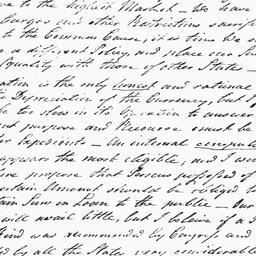 to the highest Market – We have
and other Restrictions
to the Common Cause, it is time we
a different Policy, and place our
Equality with those of other States –
is the only honest and rational
Depreciation of the Currency, but I
be too slow in its Operation to answer
purpose and Recourse must be
Expedients – An internal
appears the most eligible, and I
propose that Persons possessed of
certain Amount should be obliged to
Sum on Loan to the public – Our
will avail little, but I believe if a
kind was recommended by Congress and
by all the States very considerable